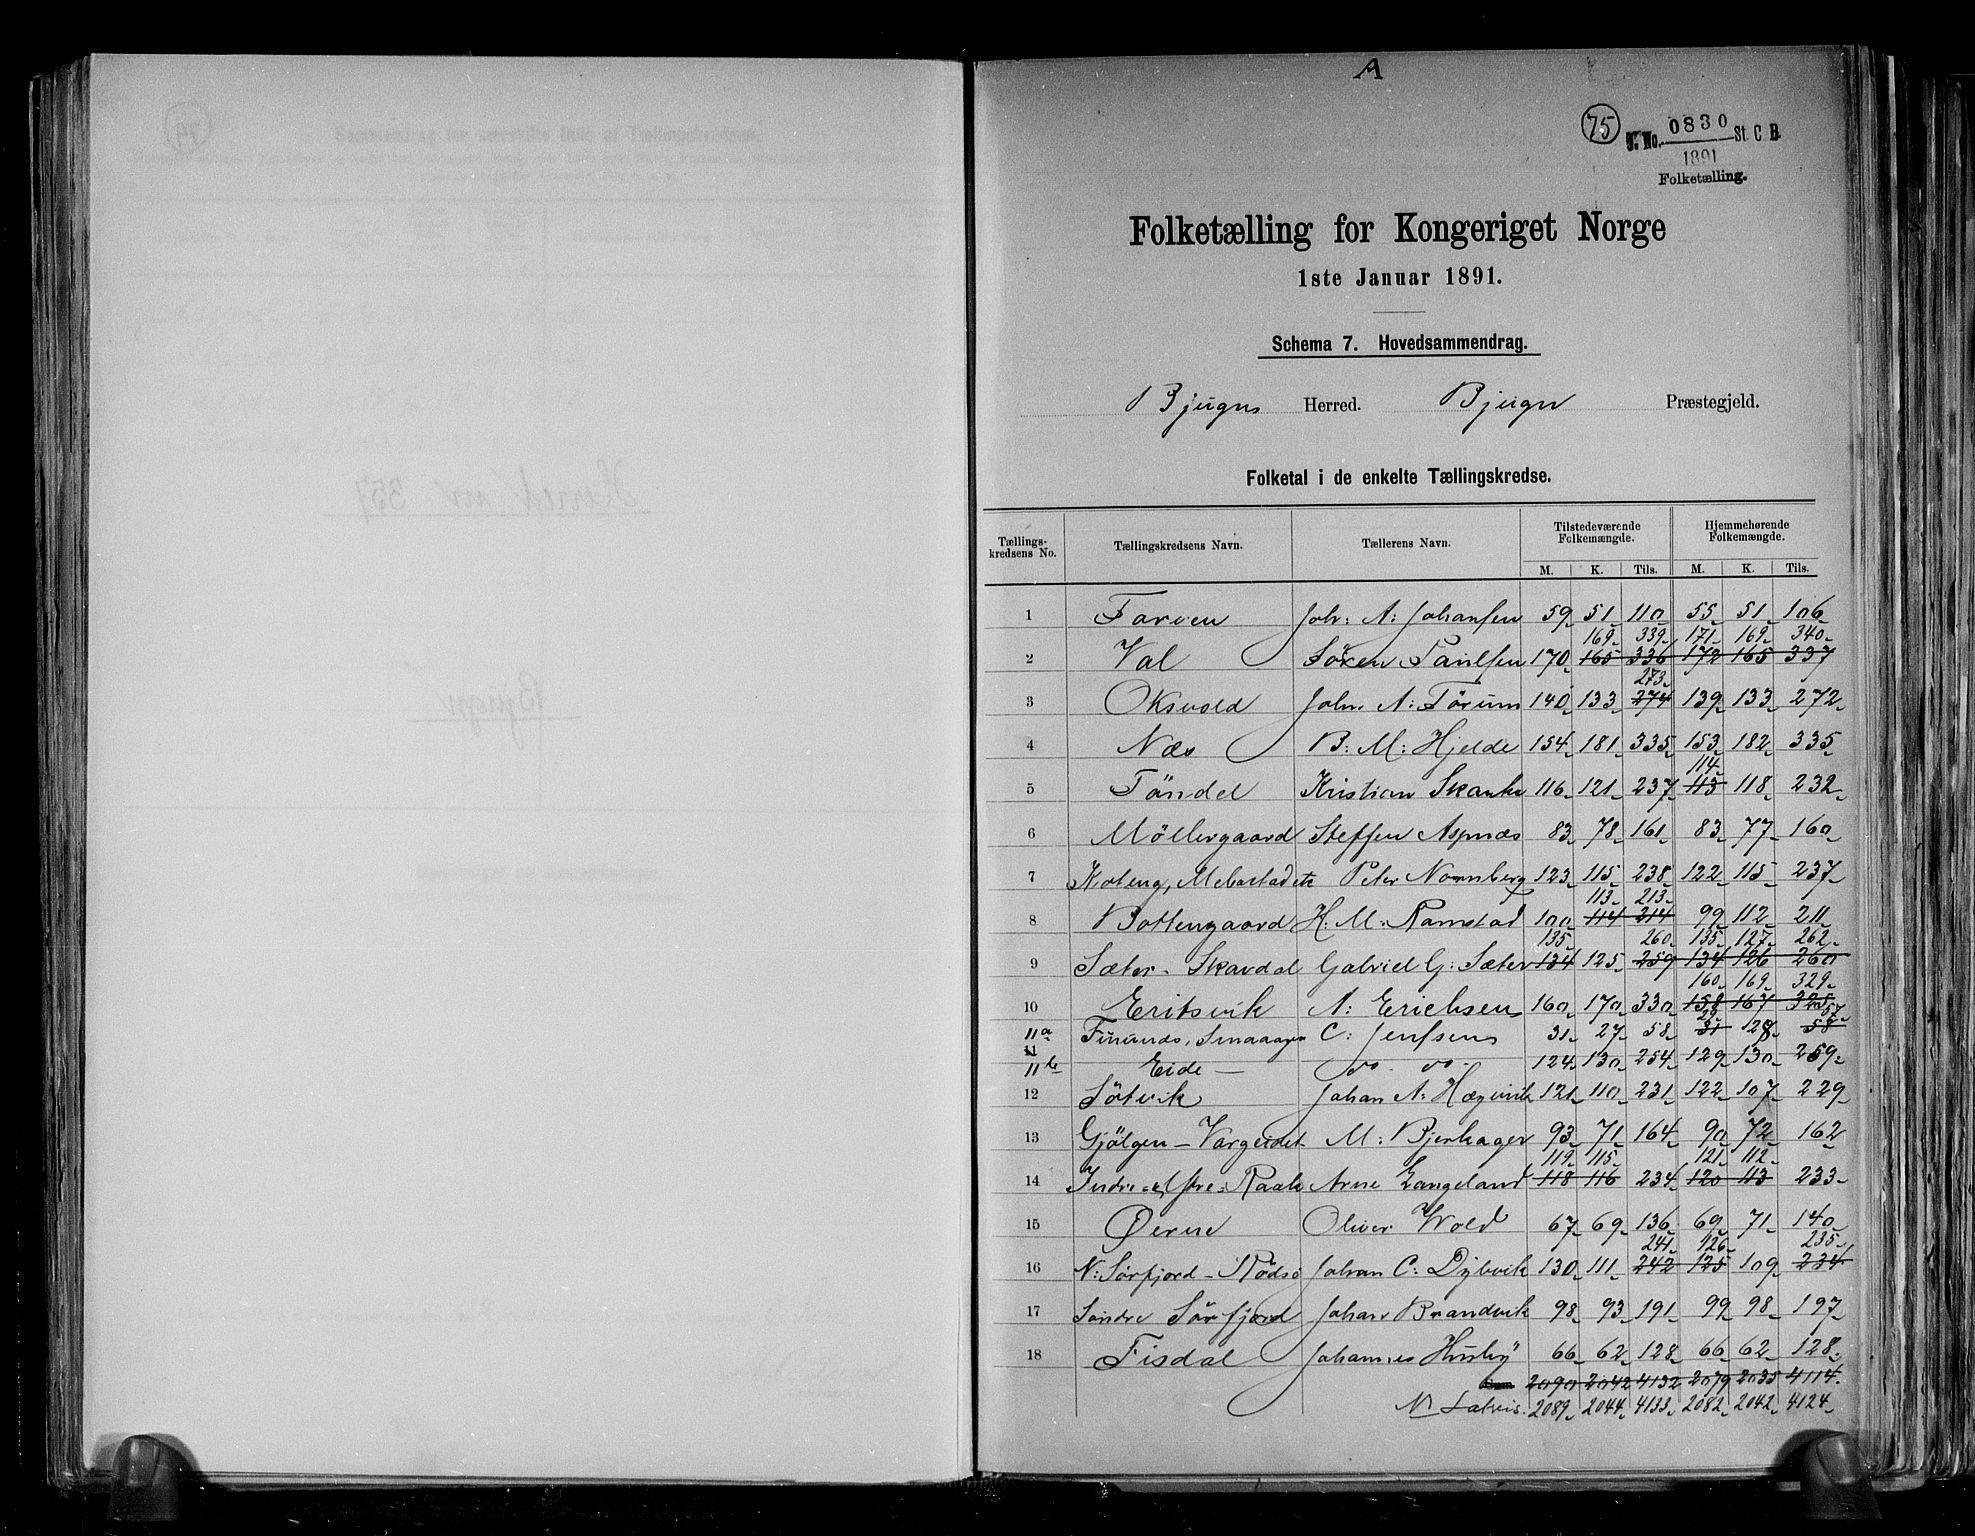 A
75
J. No. 0830 St. C. B.
1891
Folketælling.
Folketælling for Kongeriget Norge
1ste Januar 1891.
Schema 7. Hovedsammendrag.
Bjugns Herred. Bjugn Præstegjeld.
Folketal i de enkelte Tællingskredse.
Tællings-kredsens No. Tællingskredsens Navn. Tællerens Navn. Tilstedeværende Folkemængde. Hjemmehørende Folkemængde.
M. K. Tils. M. K. Tils.
1 Tarven Joh: A: Johansen 59 51 110 55 51 106
169 339 171 169 340
2 Val Sören Paulsen 170 165 336 172 165 337
273
3 Oksvold Johs A: Tørum 140 133 274 139 133 272
4 Næs B: M: Hjelde 154 181 335 153 182 335
114
5 Töndel Kristian Skanke 116 121 237 113 118 232
6 Möllergaard Steffen Aspnæs 83 78 161 83 77 160
7 Koteng, Mebostad etc Peter Normberg 123 115 238 122 115 237
113 213
8 Bottengaard H: M: Ramstad 100 114 214 99 112 211
135 260 135 127 262
9 Sæter - Skavdal Gabriel G: Sæter 134 125 259 134 126 260
160 169 329
10 Eriksvik A: Erichsen 160 170 330 158 167 325
29 57
11a C: Jenssen 31 27 58 31 128 58
11
11b Eide — do do 124 130 254 129 130 259
12 Sötvik Johan A: Hægvik 121 110 231 122 107 229
13 Gjölgen - Vargeidet M: Bjerkager 93 71 164 90 72 162
119 115 121 112
14 Indre & Ytre Raak Arne Langeland 118 116 234 120 113 233
15 Øerne Oliver Wold 67 69 136 69 71 140
241 126 235
16 N: Sörfjord - Rödsö Johan C: Dybvik 130 111 242 125 109 234
17 Söndre Sörfjord Johan Brandvik 98 93 191 99 98 197
18 Tisdal Johannes Husby 66 62 128 66 62 128
2090 2042 4132 2079 2035 4114
2089 2044 4133 2082 2042 4124